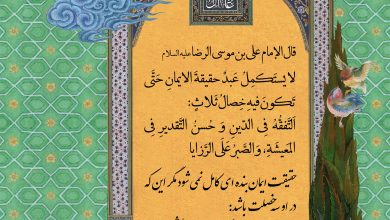 قال الإمام علي بن موسى الرضا علیه‌السلام
لا يَستَكمِلُ عَبدٌ حقيقةَ الايمانِ حَتَّى
تَكونَ فيهِ خِصالٌ ثَلاثٌ:
اَلتَّفَقُّهُ فِى الدّينِ وَ حُسنُ التَّقديرِ فِى
المَعيشَةِ، وَالصَّبرُ عَلَى الرَّزايا
حقیقت ایمان بنده ای کامل نمی شود مگر این که
در او سه خصلت باشد: